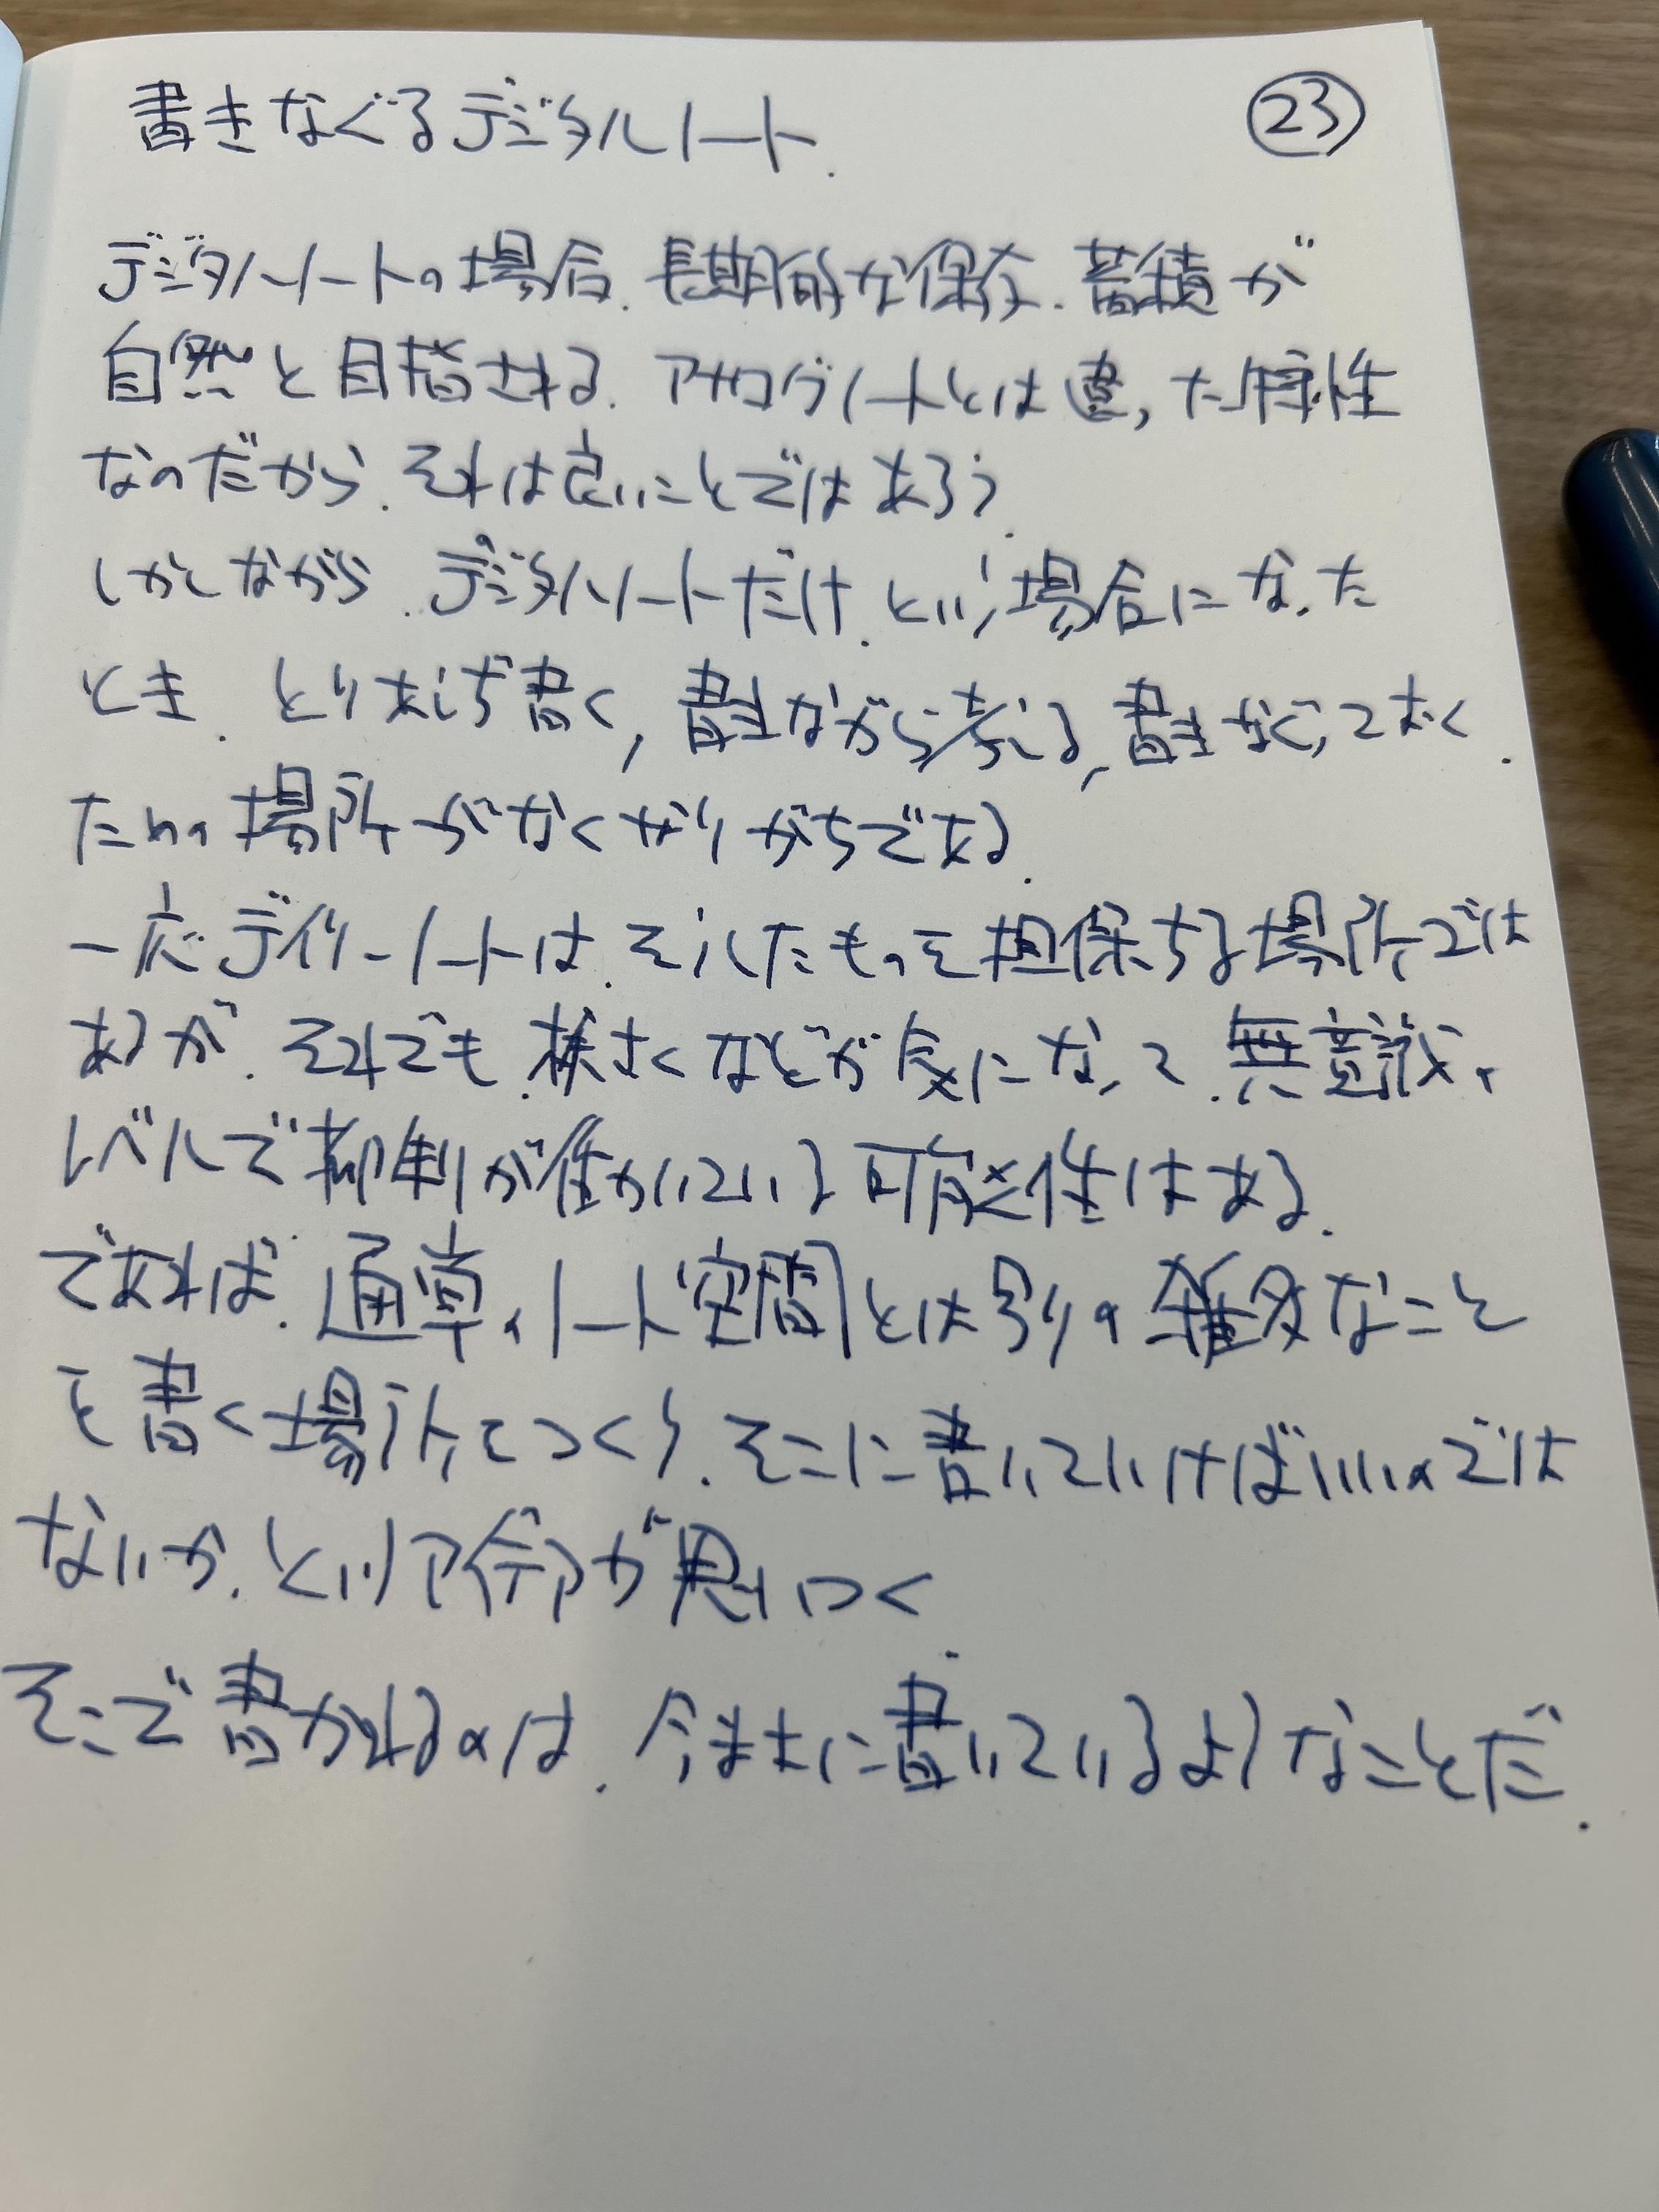 書きなぐるデジタルノート.
23
デジタルノートの場合.長期的な保存.蓄積が
自然と目指される.アナログノートとは違った特性
なのだから.それは良いことではあろう.
しかしながら.デジタルノートだけ.という場合になった
とき.とりあえず書く,書きながら考える,書きなぐっておく.
ための場所がなくなりがちである.
一応デイリーノートは.そうしたものを担保する場所では
あるが.それでも.検さくなどが気になって.無意識の
レベルで抑制が働いている可能性はある.
であれば.通常のノート空間とは別の雑多なこと
を書く場所をつくり.そこに書いていけばいいのでは
ないか.というアイデアが思いつく.
そこで書かれるのは.今まさに書いているようなことだ.